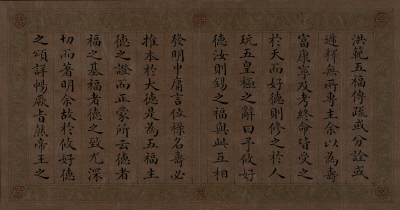 洪範五福傳疏或分詮或
遞釋無所專主余以為壽
富康寧及考終命皆受之
於天而好德則修之於人
玩五皇極之辭曰予攸好
德汝則錫之福與此互相
發明中庸言位祿名壽必
推本於大德是為五福主
德之證而正蒙所云德者
福之基福者德之致尤深
切而著明余故於攸好德
之頌詳暢厥旨蓋帝王之